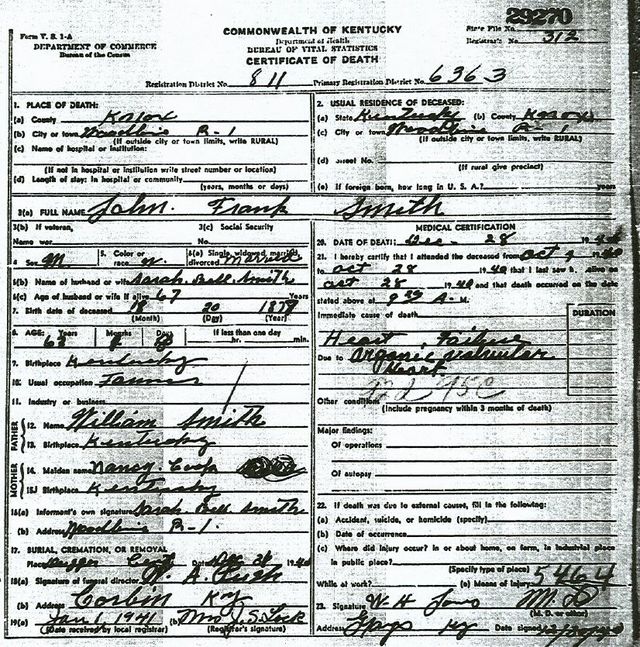 29270
Form V. S. 1-A
DEPARTMENT OF COMMERCE
Bureau of the Census
COMMONWEALTH OF KENTUCKY
Department of Health
BUREAU OF VITAL STATISTICS
CERTIFICATE OF DEATH
State File No.
Registrar's No. 312
Registration District No. 811 Primary Registration District No. 6963
1. PLACE OF DEATH:
(a) County Knox
(b) City or town Woodbine R-1
(If outside city or town limits, write RURAL)
(c) Name of hospital or institution:
(If not in hospital or institution write street number or location)
(d) Length of stay: In hospital or community
(years, months or days)
2. USUAL RESIDENCE OF DECEASED:
(a) State Kentucky (b) County Knox
(c) City or town Woodbine R-1
(If outside city or town limits, write RURAL)
(d) Street No.
(If rural give precinct)
(e) If foreign born, how long in U. S. A.? years
3(a) FULL NAME John Frank Smith
3(b) If veteran, Name war
3(c) Social Security No.
4 Sex M 5. Color or race W 6(a) Single, widowed, married, divorced Married
6(b) Name of husband or wife Sarah Bell Smith
6(c) Age of husband or wife if alive 67 Years
7. Birth date of deceased 20
(Month) (Day) (Year)
8. AGE: Years Months Days If less than one day
hr. min.
9. Birthplace Kentucky
10. Usual occupation Farmer
11. Industry or business
FATHER
12. Name William Smith
13. Birthplace Kentucky
MOTHER
14. Maiden name Nancy
15. Birthplace Kentucky
16(a) Informant's own signature Sarah Bell Smith
(b) Address Woodbine R-1.
17. BURIAL, CREMATION, OR REMOVAL
Place Date 1940
18(a) Signature of funeral director W. A.
(b) Address Corbin Ky
19(a) Jan 1, 1941 (b) Mrs J. S. Lock
(Date received by local registrar) (Registrar's signature)
MEDICAL CERTIFICATION
20. DATE OF DEATH: Dec - 28 1940
21. I hereby certify that I attended the deceased from Oct 1940
to Oct 28 1940 that I last saw h alive on
Oct 28 1940 and that death occurred on the date
stated above at A. M.
DURATION
Immediate cause of death
Heart Failure
Due to Organic valvular
Heart
Other conditions
(Include pregnancy within 3 months of death)
Major findings:
Of operations
Of autopsy
22. If death was due to external causes, fill in the following:
(a) Accident, suicide, or homicide (specify)
(b) Date of occurrence
(c) Where did injury occur? In or about home, on farm, in industrial place
in public place?
(Specify type of place)
While at work? (e) Means of injury 5464
23. Signature W H M. D
(M. D. or other)
Address Grays Ky Date signed